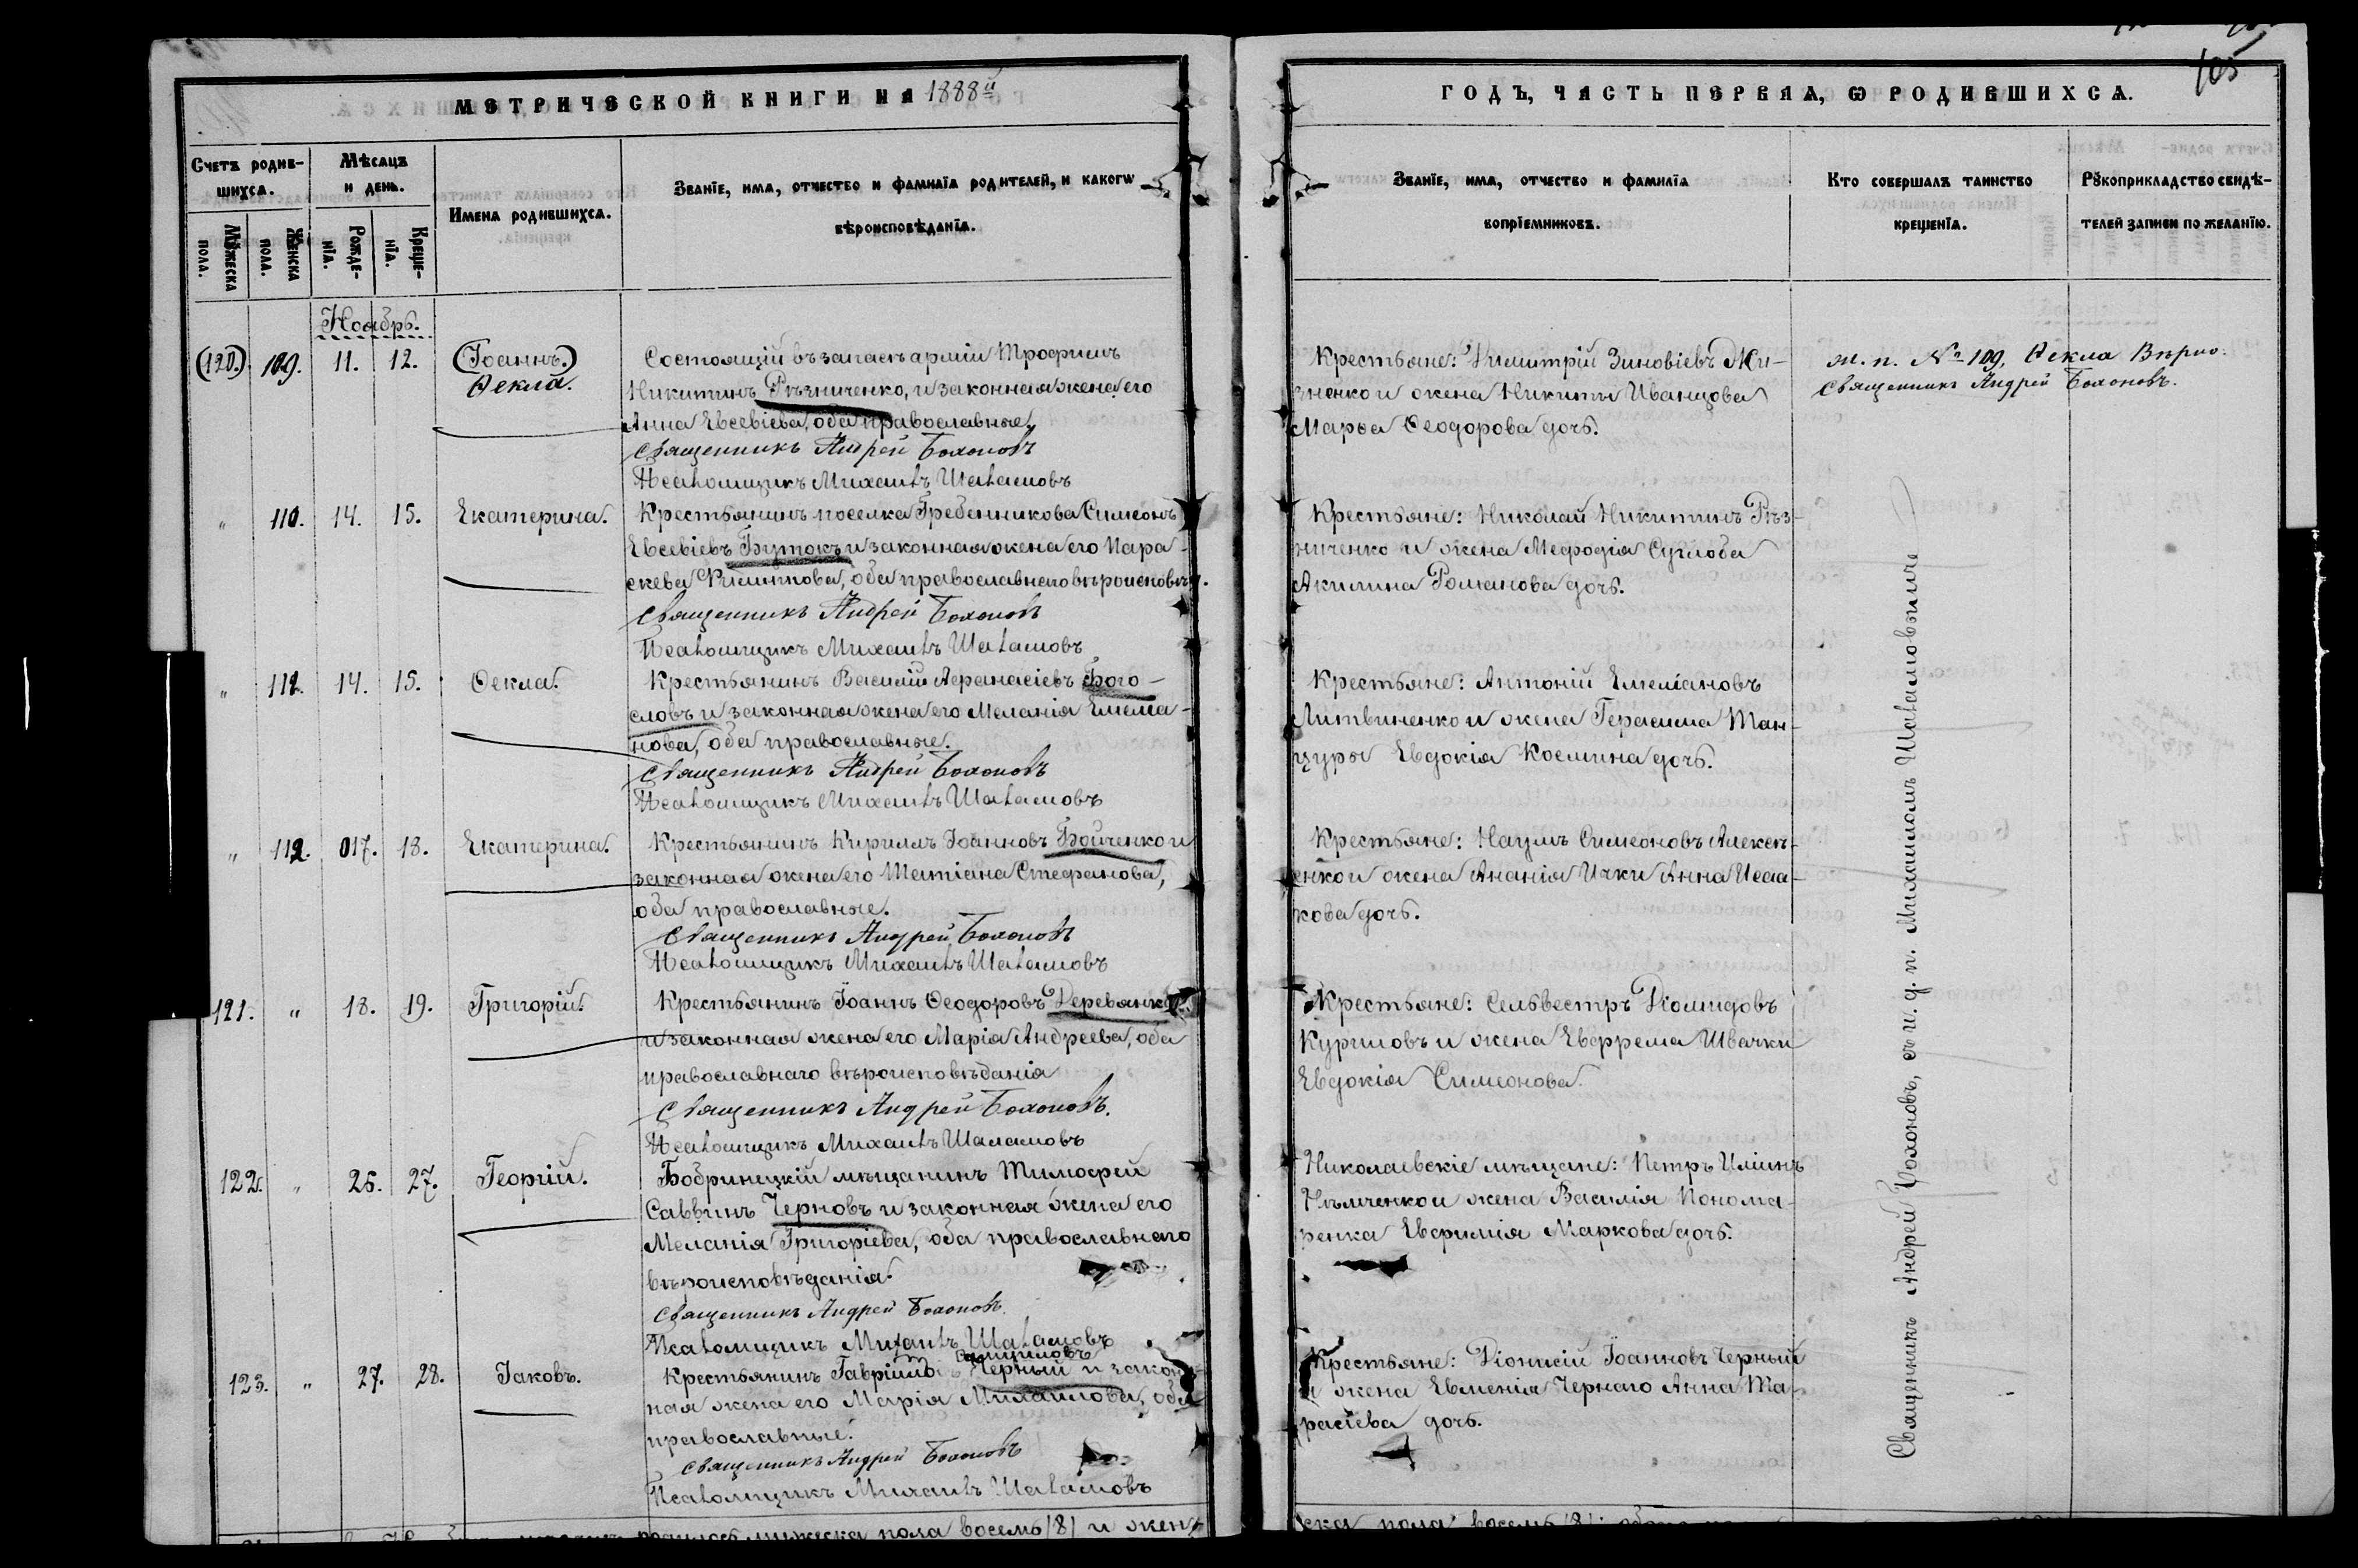 105
МЕТРИЧЕСКОЙ КНИГИ НА 1888й
ГОДЪ, ЧАСТЬ ПЕРВАѦ, Ѡ РОДИВШИХСѦ.
Счетъ родив-
шихсѧ.
Мѣсѧцъ
и день.
Имена родившихсѧ.
Званїе, имѧ, отчество и фамилїѧ родителей, и какогѡ
вѣроисповѣданїѧ.
Мꙋжеска
пола.
Женска
пола.
Рожде-
нїѧ.
Креще-
нїѧ.
Званїе, имѧ, отчество и фамилїѧ
воспрїемниковъ.
Кто совершалъ таинство
крещенїѧ.
Рꙋкоприкладство свидѣ-
телей записи по желанїю.
Ноябрь.
(120). 109. 11. 12. (Іоаннъ.)
Ѳекла.
Состоящій въ запасѣ арміи Трофимъ
Никитинъ Рѣзниченко, и законная жена его
Анна Евсевіева, оба православные.
Священникъ Андрей Бохоновъ
Псаломщикъ Михаилъ Шаламовъ
Крестьяне: Димитрій Зиновіевъ Жи-
зненко и жена Никиты Иванцова
Марѳа Ѳеодорова дочь.
ж. п. № 109, Ѳекла Вѣрно.
Священникъ Андрей Бохоновъ.
" 110. 14. 15. Екатерина.
Крестьянинъ поселка Гребенникова Симеонъ
Евсевіевъ Бутокъ и законная жена его Пара-
скева Филиппова, оба православнаго вѣроисповѣд.
Священникъ Андрей Бохоновъ
Псаломщикъ Михаилъ Шаламовъ
Крестьяне: Николай Никитинъ Рѣз-
ниченко и жена Меѳодія Суглоба
Акилина Романова дочь.
" 111. 14. 15. Ѳекла.
Крестьянинъ Василій Аѳанасіевъ Бого-
словъ и законная жена его Меланія Емелiа-
нова, оба православные.
Священникъ Андрей Бохоновъ
Псаломщикъ Михаилъ Шаламовъ
Крестьяне: Антоній Емеліановъ
Литвиненко и жена Герасима Ман-
цуры Евдокія Космина дочь.
" 112. 017. 18. Екатерина.
Крестьянинъ Кириллъ Іоанновъ Бойченко и
законная жена его Татіана Стефанова,
оба православные.
Священникъ Андрей Бохоновъ
Псаломщикъ Михаилъ Шаламовъ
Крестьяне: Наумъ Симеоновъ Алексѣ-
енко и жена Ананія Ички Анна Исаа-
кова дочь.
121. " 18. 19. Григорій.
Крестьянинъ Іоаннъ Ѳеодоровъ Деревянко
и законная жена его Марія Андреева, оба
православнаго вѣроисповѣданія
Священникъ Андрей Бохоновъ.
Псаломщикъ Михаилъ Шаламовъ
Крестьяне: Сельвестръ Діомидовъ
Куриловъ и жена Евфрема Швачки
Евдокія Симеонова.
122. " 25. 27. Георгій.
Бобринецкій мѣщанинъ Тимоѳей
Саввинъ Черновъ и законная жена его
Меланія Григоріева, оба православнаго
вѣроисповѣданія.
Священникъ Андрей Бохоновъ.
Псаломщикъ Михаилъ Шаламовъ
Николаевскіе мѣщане: Петръ Иліинъ
Нѣмченко и жена Василія Понома-
ренка Евфимія Маркова дочь.
123. " 27. 28. Іаковъ.
Крестьянинъ Гавріилъ Черный и закон-
ная жена его Марія Михаилова, оба
православные.
Священникъ Андрей Бохоновъ
Псаломщикъ Михаилъ Шаламовъ
Крестьяне: Діонисій Іоанновъ Черный
и жена Евменія Чернаго Анна Та-
расіева дочь.
Священникъ Андрей Бохоновъ, съ и. д. п. Михаиломъ Шаламовымъ
родилось мужеска пола восемь (8) и жен-
ска пола восемь (8)